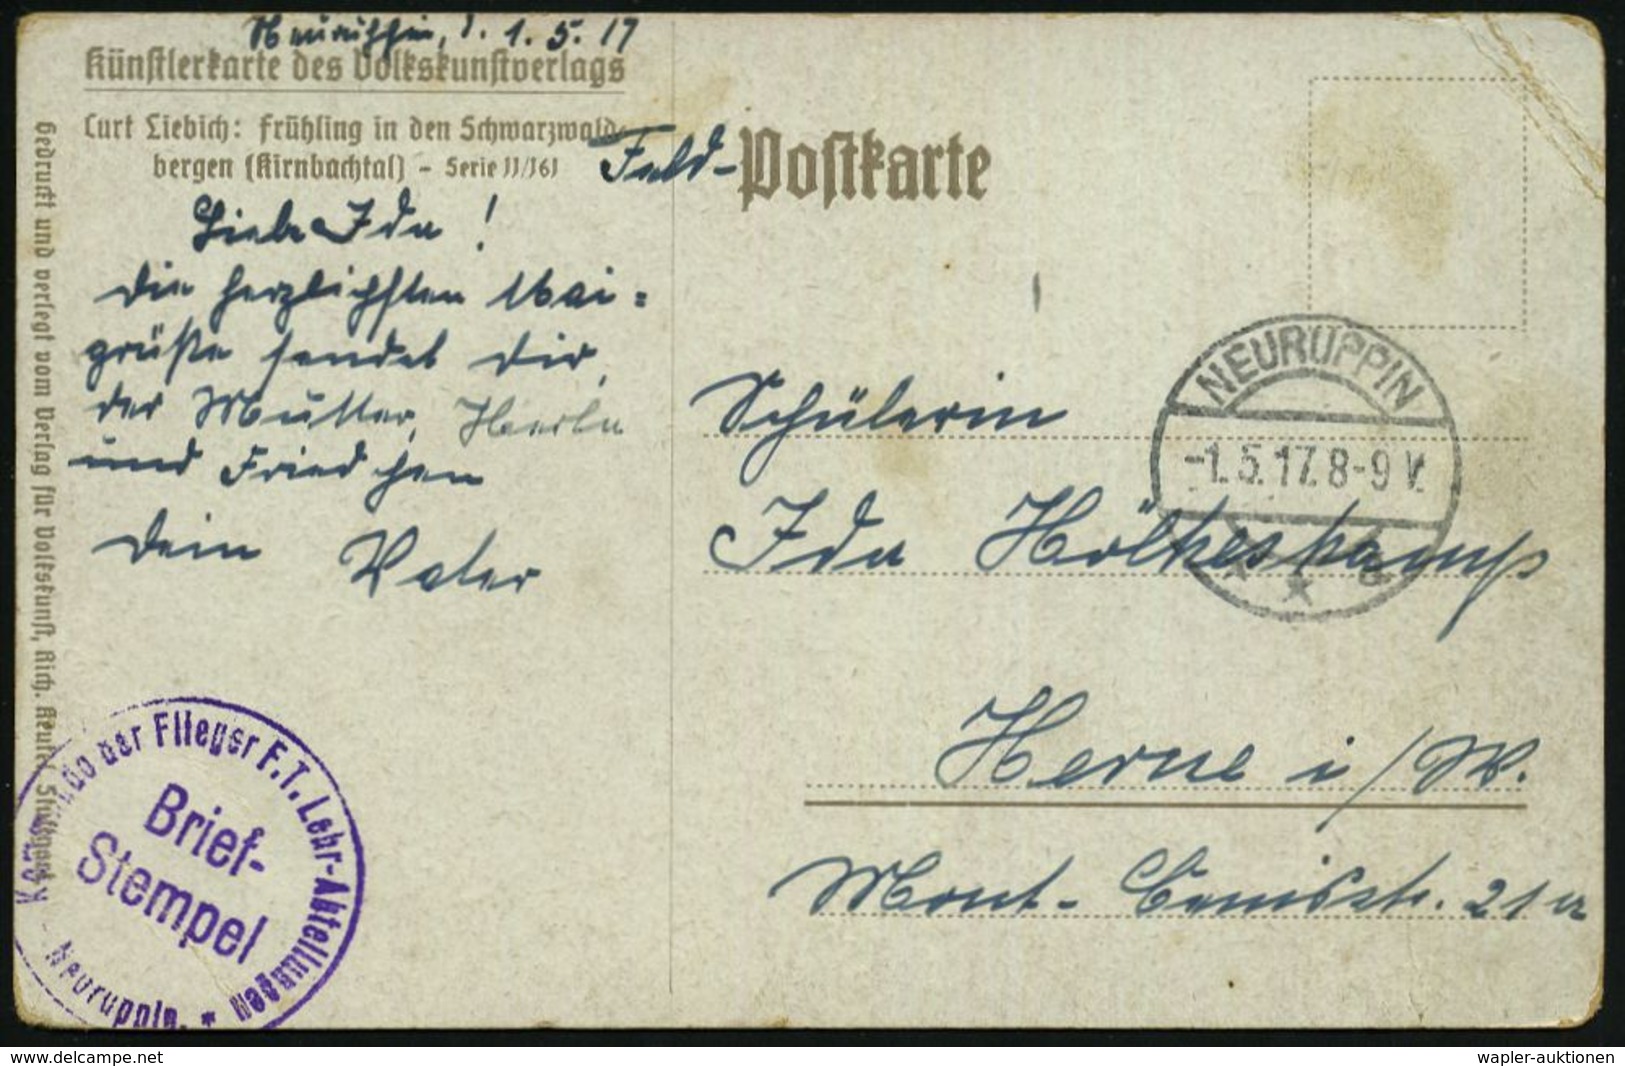 Neuruppin, d. 1.5.17
Künstlerkarte des Volkskunstverlags
Curt Liebich: Frühling in den Schwarzwald-
bergen (Kirnbachtal) - Serie 11/161
Liebe Ida!
Die herzlichsten Mai=
grüße sendet Dir,
der Mutter,
und Friedchen
Dein Vater
Gedruckt und verlegt vom Verlag für Volkskunst, Rich. Keutel Stuttgart
Kommando der Flieger F.T. Lehr-Abteilungen
Brief-
Stempel
- Neuruppin. *
Feld-Postkarte
NEURUPPIN
-1.5.17. 8-9 V.
* * b
Schülerin
Ida Hölkeskamp
Herne i/W.
Mont-Cenisstr. 21a
www.delcampe.net
wapler-auktionen